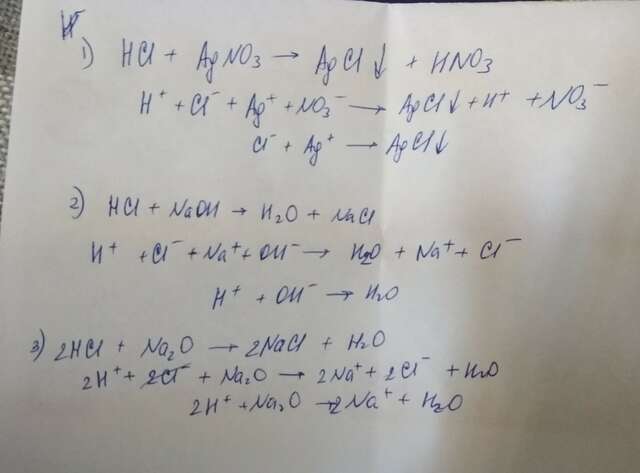 1) HCl + AgNO₃ → AgCl↓ + HNO₃
H⁺ + Cl⁻ + Ag⁺ + NO₃⁻ → AgCl↓ + H⁺ + NO₃⁻
Cl⁻ + Ag⁺ → AgCl↓
2) HCl + NaOH → H₂O + NaCl
H⁺ + Cl⁻ + Na⁺ + OH⁻ → H₂O + Na⁺ + Cl⁻
H⁺ + OH⁻ → H₂O
3) 2HCl + Na₂O → 2NaCl + H₂O
2H⁺ + 2Cl⁻ + Na₂O → 2Na⁺ + 2Cl⁻ + H₂O
2H⁺ + Na₂O → 2Na⁺ + H₂O